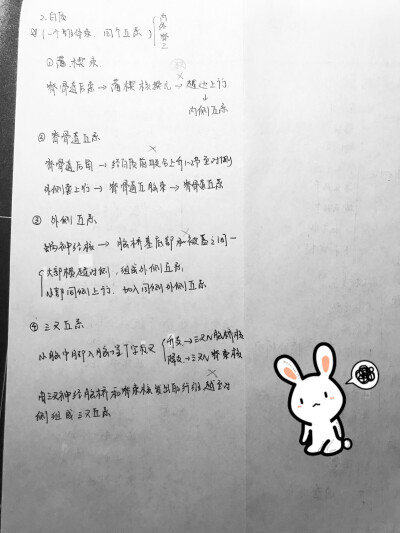 2. 白质
一个锥体束、四个丘系 { 内 外 脊 三
① 薄楔束
脊骨道后索 → 薄楔核换元 → 越边上行
↓
内侧丘系
② 脊骨道丘系
脊骨道后角 → 经白质前联合上升1-2节至对侧
外侧索上行 → 脊骨道丘脑束 → 脊骨道丘系
③ 外侧丘系
蜗神经核 → 脑桥基底部和被盖之间一
大部横越对侧,组成外侧丘系
小部同侧上行,加入同侧外侧丘系
④ 三叉丘系
从脑中部入脑
升支 → 三叉N脑桥核
降支 → 三叉N脊束核
由三叉神经脑桥和脊束核发出的纤维越至对
侧组成三叉丘系